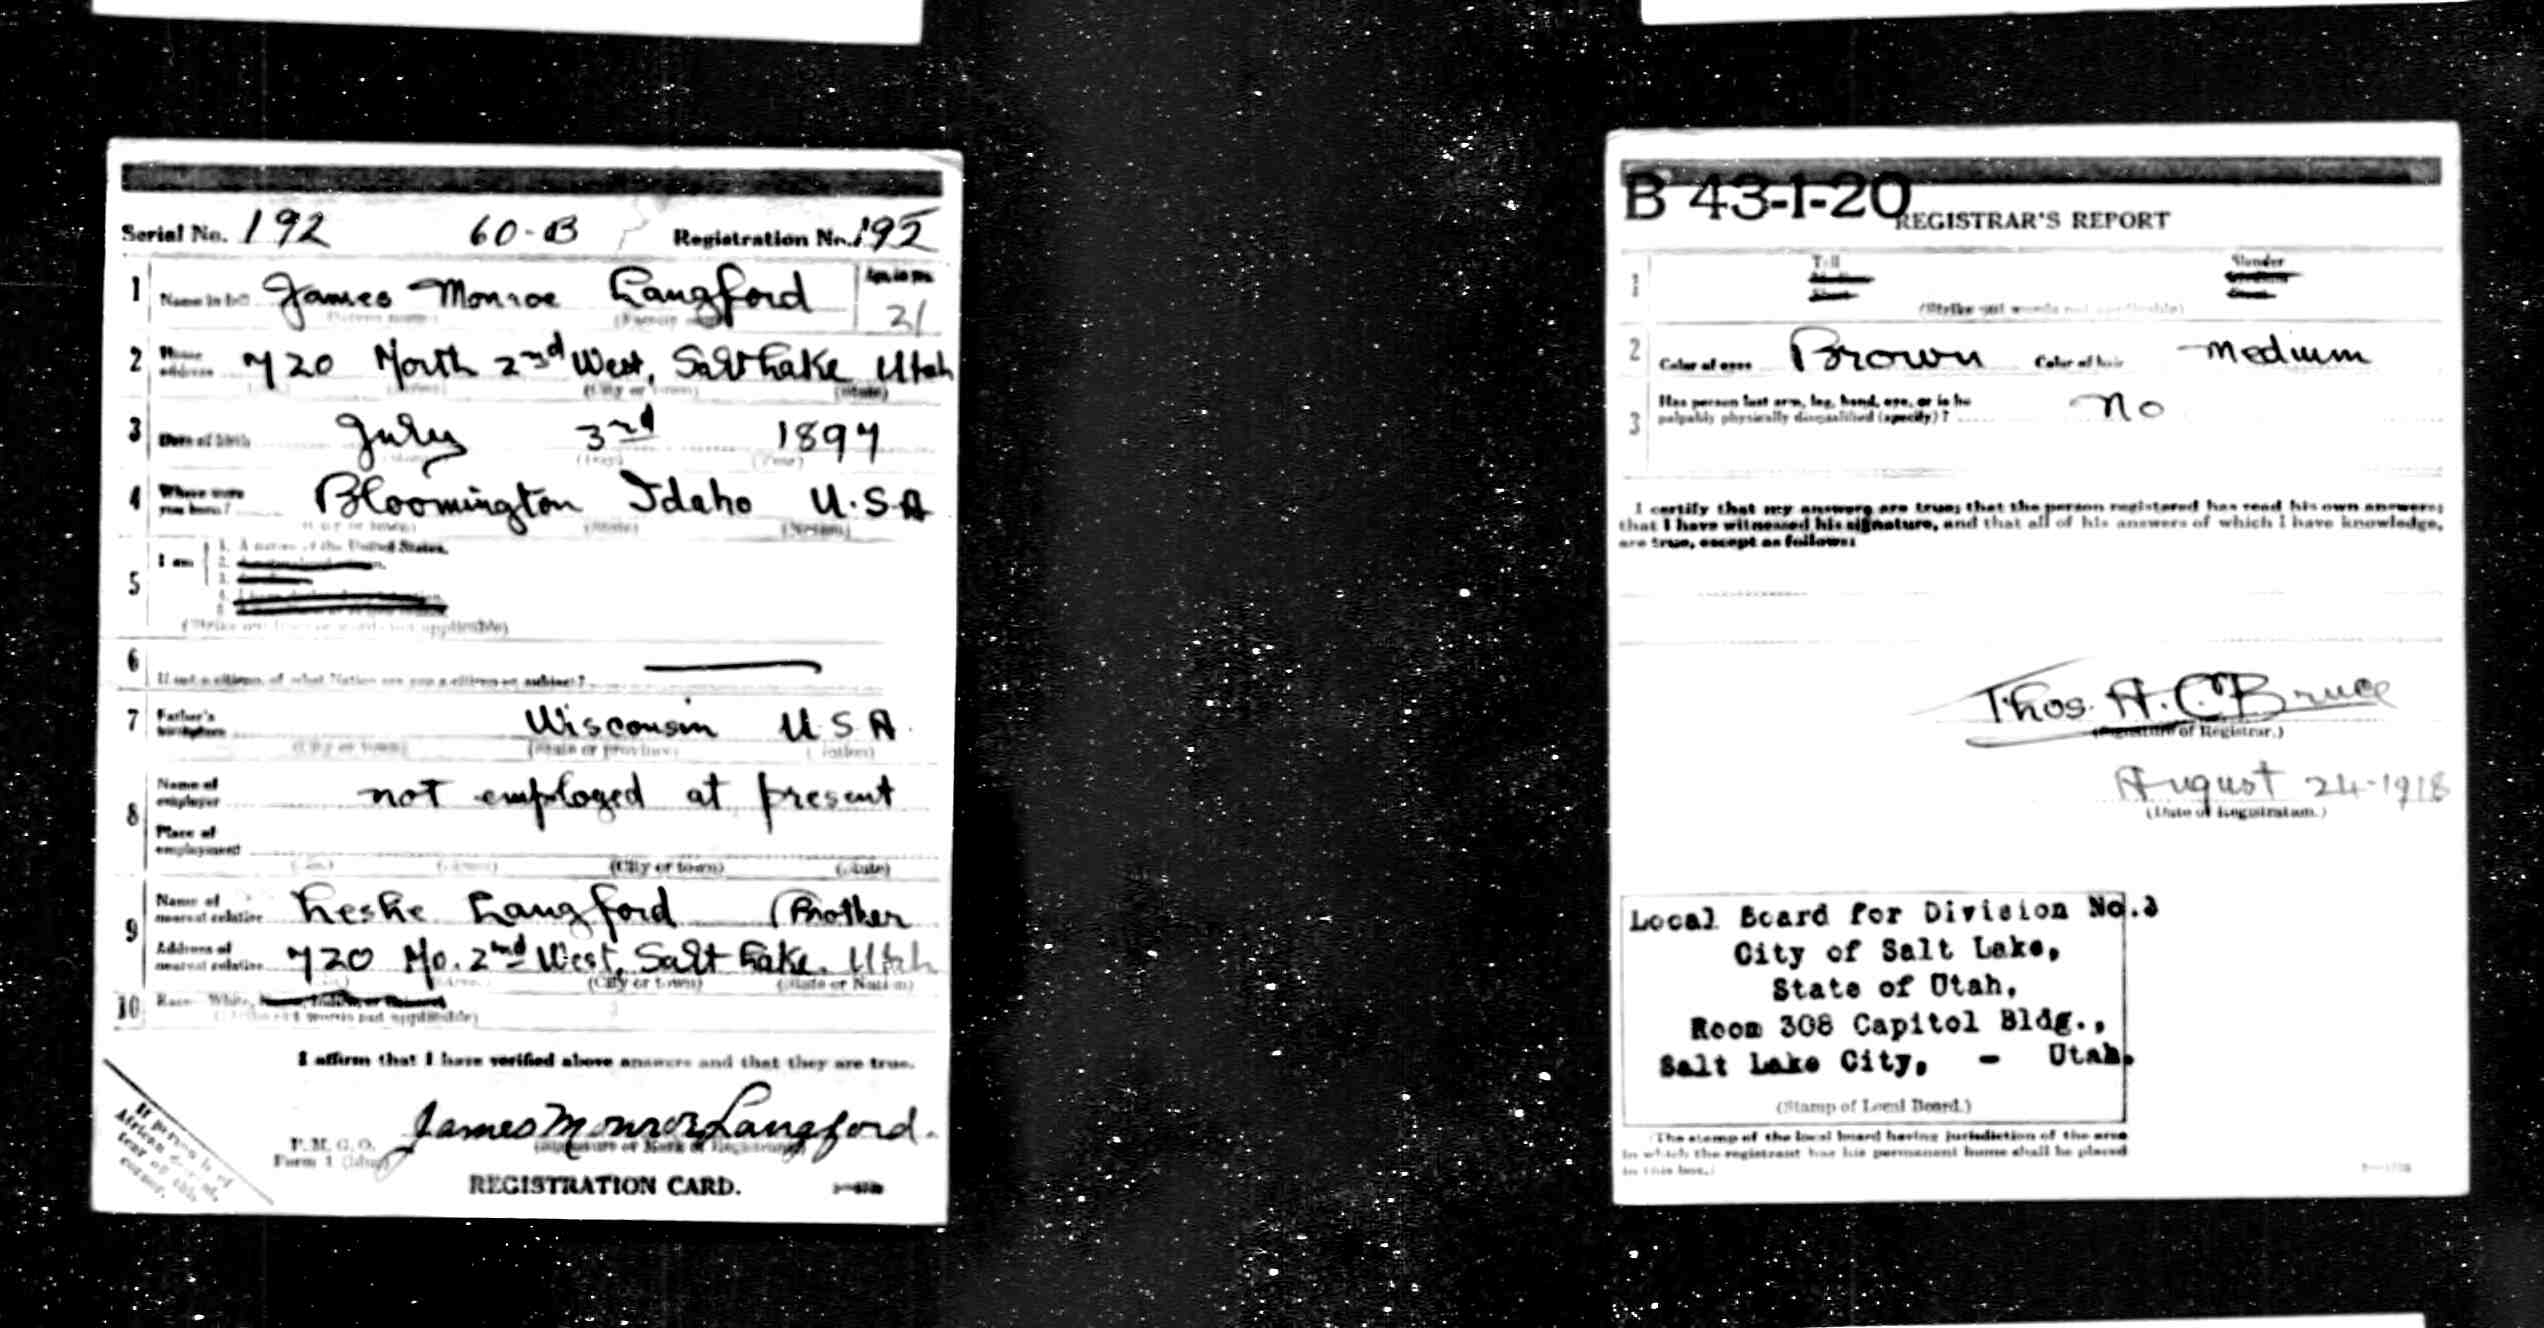 Serial No. 192 60-B Registration No. 195
1 Name in full James Monroe Langford Age, in yrs. 21
(Family name)
2 Home address 720 North 2nd West, Salt Lake Utah
(City or town) (State)
3 Date of birth July 3rd 1897
(Day) (Year)
4 Where were you born? Bloomington Idaho U.S.A
(State) (Nation)
5 I am 1. A native of the United States.
2.
3.
4.
5.
(Strike out lines or words not applicable)
6 If not a citizen, of what Nation are you a citizen or subject?
7 Father's birthplace Wisconsin U.S.A.
(City or town) (State or province) (Nation)
8 Name of employer not employed at present
Place of employment
(City or town) (State)
9 Name of nearest relative Leslie Langford (Brother
Address of nearest relative 720 No. 2nd West, Salt Lake. Utah
(City or town) (State or Nation)
10 Race—White,
(Strike out words not applicable)
I affirm that I have verified above answers and that they are true.
James Monroe Langford.
P. M. G. O.
Form 1 (blue) (Signature or Mark of Registrant)
REGISTRATION CARD.
If person is of
African descent,
tear off this
corner.
B 43-1-20
REGISTRAR'S REPORT
1 Tall Slender
Medium Medium
Short Stout
(Strike out words not applicable)
2 Color of eyes Brown Color of hair Medium
3 Has person lost arm, leg, hand, eye, or is he
palpably physically disqualified (specify)? No
I certify that my answers are true; that the person registered has read his own answers;
that I have witnessed his signature, and that all of his answers of which I have knowledge,
are true, except as follows:
(Signature of Registrar.)
August 24-1918
(Date of Registration.)
Local Board for Division No.3
City of Salt Lake,
State of Utah,
Room 308 Capitol Bldg.,
Salt Lake City, - Utah.
(Stamp of Local Board.)
(The stamp of the local board having jurisdiction of the area
in which the registrant has his permanent home shall be placed
in this box.)